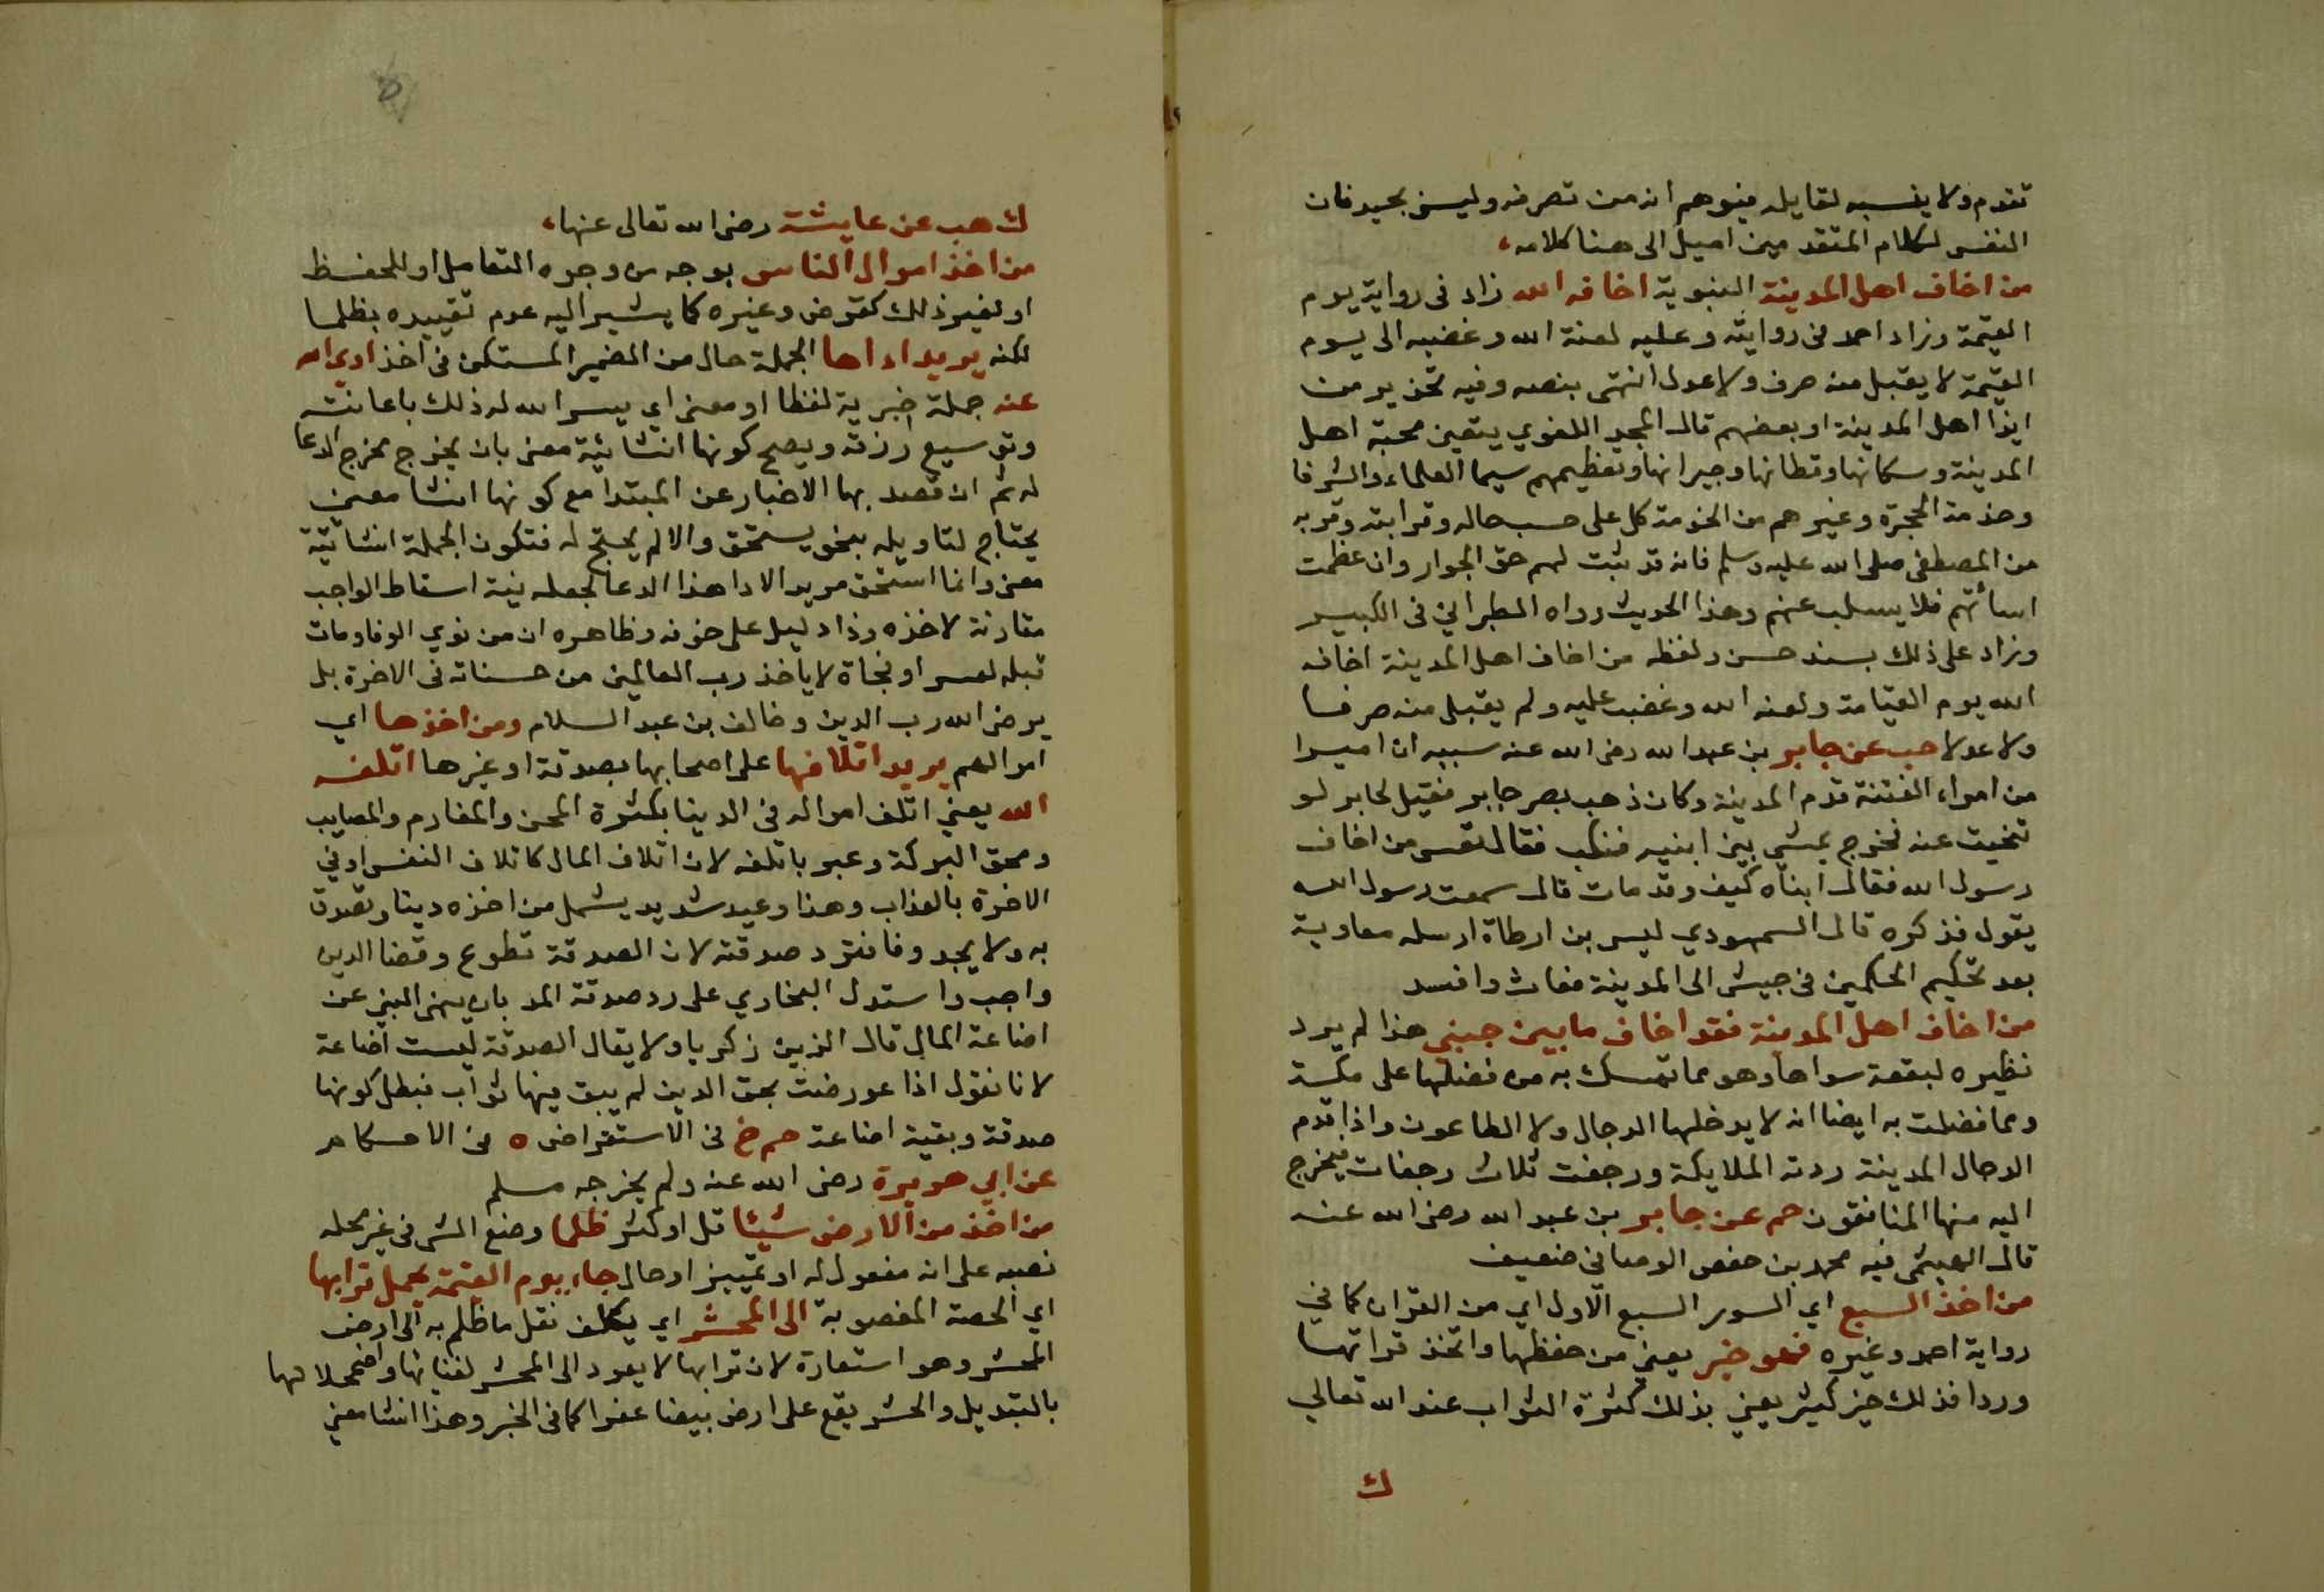 تقدم ولا ينسبه لقايله فيوهم انه من تصرفه وليس بجيد فان
النفس لكلام المتقدمين اميل الى هنا كلامه،
من اخاف اهل المدينة النبوية اخافه الله زاد في رواية يوم
القيمة وزاد احمد في روايته وعليه لعنة الله وغضبه الى يوم
القيمة لا يقبل منه صرف ولا عدل انتهى بنصه وفيه تحذير من
ايذا اهل المدينة او بعضهم قال المجد اللغوي يتعين محبة اهل
المدينة وسكانها وقطانها وجيرانها وتعظيمهم سيما العلماء والشرفا
وخدمة الحجرة وغيرهم من الخدمة كل على حسب حاله وقرابته وقربه
من المصطفى صلى الله عليه وسلم فانه قد ثبت لهم حق الجوار وان عظمت
اسائتهم فلا يسلب عنهم وهذا الحديث رواه الطبراني في الكبير
وزاد على ذلك بسند حسن ولفظه من اخاف اهل المدينة اخافه
الله يوم القيامة ولعنه الله وغضب عليه ولم يقبل منه صرفا
ولا عدلا حب عن جابر بن عبد الله رضى الله عنه سببه ان اميرا
من امراء الفتنة قدم المدينة وكان ذهب بصر جابر فقيل لجابر لو
تنحيت عنه فخرج يمشي بين ابنيه فنكب فقال تعس من اخاف
رسول الله فقال ابناه كيف وقد مات قال سمعت رسول الله
يقول فذكره قال السمهودي ليسر بن ارطاة ارسله معاوية
بعد تحكيم الحكمين في جيش الى المدينة فعاث وافسد
من اخاف اهل المدينة فقد اخاف ما بين جنبي هذا لم يرد
نظيره لبقعة سواها وهو مما تمسك به من فضلها على مكة
ومما فضلت به ايضا انه لا يدخلها الدجال ولا الطاعون واذا قدم
الدجال المدينة ردته الملايكة ورجفت ثلاث رجفات فيخرج
اليه منها المنافقون حم عن جابر بن عبد الله رضى الله عنه
قال الهيثمى فيه محمد بن حفص الوصابي ضعيف
من اخذ السبع اي السور السبع الاول اي من القران كما في
رواية احمد وغيره فهو خير يعني من حفظها واتخذ قراتها
وردا فذلك خير كثير يعني بذلك كثرة الثواب عند الله تعالي
ك
ك هب عن عايشة رضى الله تعالى عنها،
من اخذ اموال الناس بوجه من وجوه التعامل او للحفظ
او لغير ذلك كقرض وغيره كما يشير اليه عدم تقييده بظلما
لكنه يريد اداها الجملة حال من الضمير المستكن في اخذ ادى الله
عنه جملة خبرية لفظا او معنى اي يسر الله له ذلك باعانته
وتوسيع رزقه ويصح كونها انشائية معنى بان يخرج مخرج الدعا
له ثم ان قصد بها الاخبار عن المبتدا مع كونها انشا معنى
يحتاج لتاويله بنحو يستحق والا لم يحتج له فتكون الجملة انشائية
معنى وانما استحق مريد الادا هذا الدعا لجعله نية اسقاط الواجب
مقارنة لاخذه وذا دليل على خوفه وظاهره ان من نوي الوفا ومات
قبله لعسر او فجاة لا ياخذ رب العالمين من حسناته في الاخرة بل
يرضى الله رب الدين وخالف بن عبد السلام ومن اخذها اي
اموالهم يريد اتلافها على اصحابها بصدقة او غيرها اتلفه
الله يعني اتلف امواله في الدنيا بكثرة المحن والمغارم والمصايب
ومحق البركة وعبر باتلفه لان اتلاف المال كاتلاف النفس او في
الاخرة بالعذاب وهذا وعيد شديد يشمل من اخذه دينا وتصدق
به ولا يجد وفا فترد صدقته لان الصدقة تطوع وقضا الدين
واجب واستدل البخاري على رد صدقة المد بان بنهى النبي عن
اضاعة المال قال الزين زكريا ولا يقال الصدقة ليست اضاعة
لانا نقول اذا عورضت بحق الدين لم يبق فيها ثواب فبطل كونها
صدقة وبقيت اضاعة حم خ في الاستقراض ه في الاحكام
عن ابي هريرة رضى الله عنه ولم يخرجه مسلم
من اخذ من الارض شيئا قل او كثر ظلما وضع الشى في غير محله
نصبه على انه مفعول له او تمييز او حال جاء يوم القيمة يحمل ترابها
اي الحصة المغصوبة الى المحشر اي يكلف نقل ما ظلم به الى ارض
المحشر وهو استعارة لان ترابها لا يعود الى المحشر لفنائها واضمحلالها
بالتبديل والحشر يقع على ارض بيضا عفرا كما في الخبر وهذا انشا معنى